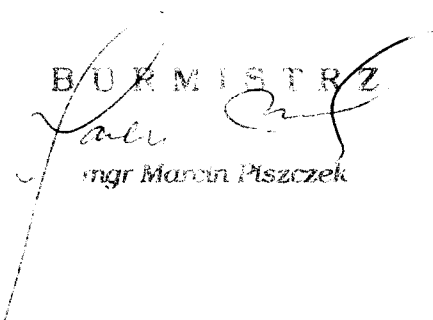 BURMISTRZ
mgr Marcin Piszczek